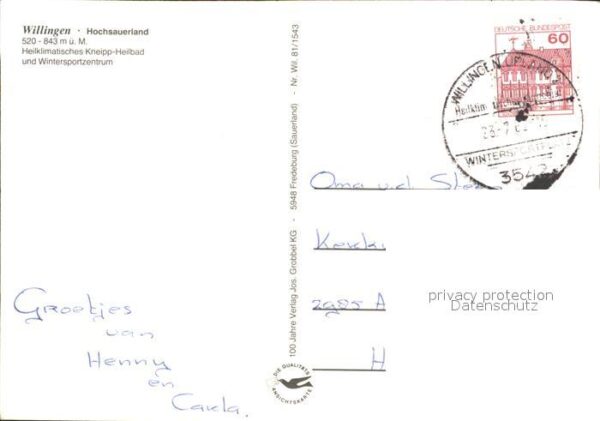 Willingen · Hochsauerland
520 - 843 m ü. M.
Heilklimatisches Kneipp-Heilbad
und Wintersportzentrum
Groetjes
van
Henny
en
Carla.
100 Jahre Verlag Jos. Grobbel KG - 5948 Fredeburg (Sauerland) - Nr. Wil. 81/1543
DIE QUALITÄTS
ANSICHTSKARTE
DEUTSCHE BUNDESPOST
60
WILLINGEN, UPLAND
Heilklim.
WINTERSPORTPLATZ
354
Oma v.d.
2985 A
H
privacy protection
Datenschutz